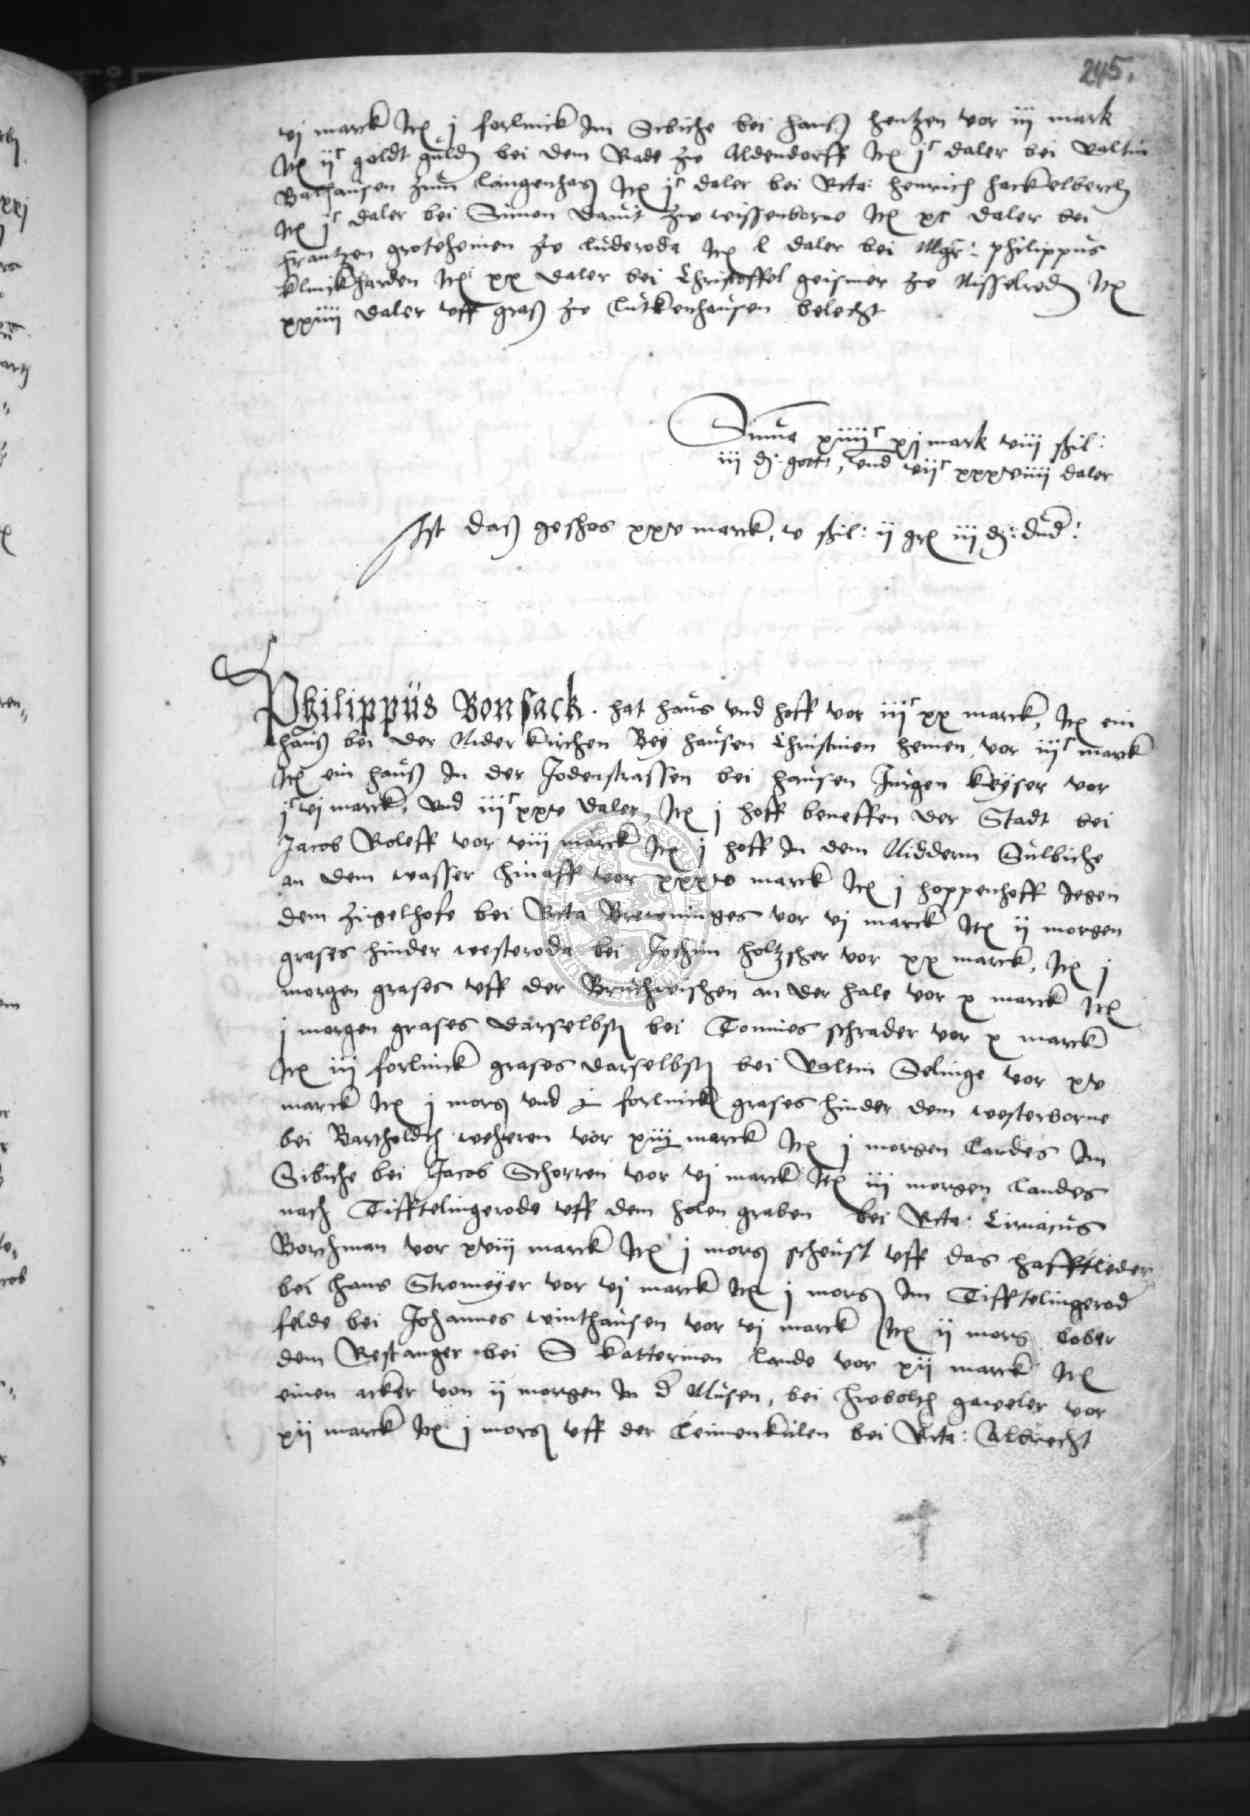 245.
vj marck Itē j forlinck Im Sebiche bei hanß hentzen vor iij mark
Itē ijᶜ goldt güldē bei dem Rade zu Aldendorff Itē jᶜ daler bei Valtin
Bathausen zum langenhag Itē jᶜ daler bei Rcta: Henrich hackelberch
Itē jᶜ daler bei Simon Davit zu wissenborne Itē xc daler bei
frantzen grotehenien zu Lüderoda Itē l daler bei Mgr: philippus
klinckharden Itē xx daler bei Christoffel geismer zu Nisselrodē Itē
xxiiij daler vff graß zu Lütkenhausen belecht
Summa xiiijᶜ xj mark viij ßil:
iij ₰: gotti, vnd vijᶜ xxxviiij daler
Ist daß geschos xxv marck, v ßil: ij grē iij ₰: dud:
Philippüs Bonsack. hat haus vnd hoff vor iijᶜ xx marck, Itē ein
hauß bei der Nider kirchen Bey hausen Christinen henien, vor iijᶜ marck
Itē ein hauß In der Jodenstrassen bei hausen Jürgen keyser vor
jᶜ vj marck, vnd iijᶜ xxv daler, Itē j hoff beneffen der Stadt bei
Jacob Roleff vor viij marck Itē j hoff In dem Niddern Sulbiche
an dem wasser hinaff vor xxxv marck Itē j hoppenhoff Jegen
dem Zigelhofe bei Rcta Breveninges vor vj marck Itē ij morgen
grases hinder westeroda bei Jochim holtzsher vor xx marck, Itē j
morgen grases vff der Bruchwischen an der hale vor x marck Itē
j morgen grases darselbst bei Tonnies schrader vor x marck
Itē iij forlinck grases darselbst bei Valtin Selinge vor xv
marck Itē j morg vnd j forlinck grases hinder dem westerborne
bei Bartholdt weheren vor xiij marck Itē j morgen Landes Im
Sebiche bei Jacob Schorren vor vj marck Itē iij morgen Landes
nach Tifftelingerode vff dem holen graben bei Rcta: Ciriacus
Borchman vor xviij marck Itē j morg scheust vff das hafftleder
bei hans Stromeyer vor vj marck Itē j morg Im Tifftelingerod
felde bei Johannes winthausen vor vj marck Itē ij morg Lober
dem Restanger bei S kattermen Lande vor xij marck Itē
einen acker von ij morgen In d Musen, bei hebolt gaweler vor
xij marck Itē j morg vff der Leimenkulen bei Rcta: Albrecht